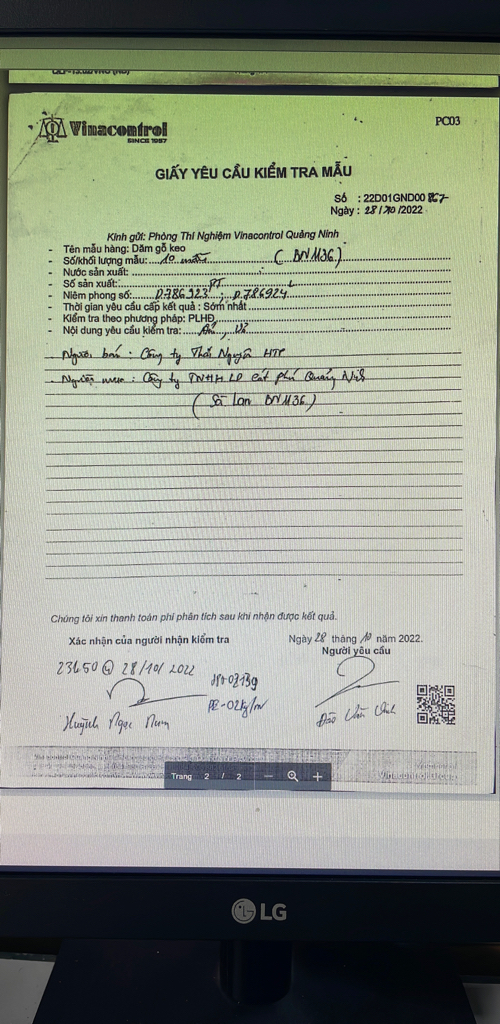 Vinacontrol
SINCE 1957
PC03
GIẤY YÊU CẦU KIỂM TRA MẪU
Số : 22D01GND00
Ngày : 28/10/2022
Kính gửi: Phòng Thí Nghiệm Vinacontrol Quảng Ninh
- Tên mẫu hàng: Dăm gỗ keo
- Số/khối lượng mẫu: 10 mẫu (BN1136)
- Nước sản xuất:
- Số sản xuất:
- Niêm phong số: 0786923 PT, 0786924 L
- Thời gian yêu cầu cấp kết quả : Sớm nhất
- Kiểm tra theo phương pháp: PLHĐ
- Nội dung yêu cầu kiểm tra:
- Người bán : Công ty Thái Nguyên HTP
- Người mua : Công ty TNHH LD cát phú Quảng Ninh
(Sà lan BN1136)
Chúng tôi xin thanh toán phí phân tích sau khi nhận được kết quả.
Xác nhận của người nhận kiểm tra
Ngày 28 tháng 10 năm 2022.
Người yêu cầu
23h50 @ 28/10/2022
Huỳnh Ngọc Nam
Đào Văn
Trang 2 / 2 − +
Vinacontrol Group
LG